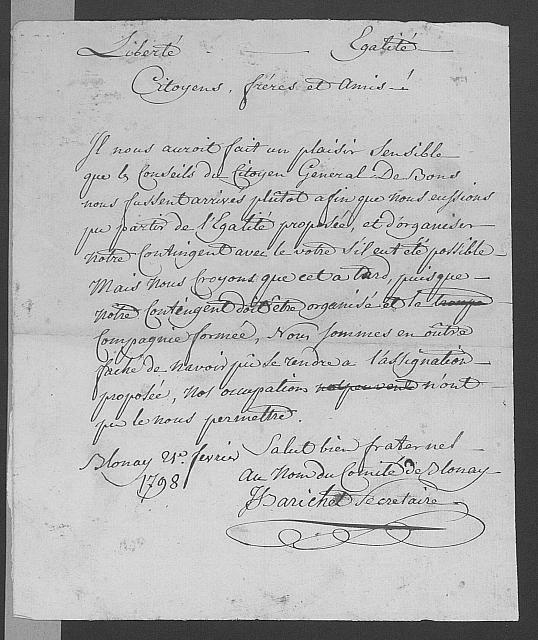 Liberté Egalité
Citoyens, fréres et Amis!
Il nous auroit fait un plaisir sensible
que les Conseils du Citoyen General De Bons
nous fussent arrivés plutot afin que nous eussions
pu partir de l'Egalité proposée, et d'organiser
notre Contingent avec le votre s'il eut été possible
Mais nous Croyons que cet a tard, puisque
notre Contingent doit etre organisé et la troupe
Compagnie formée, Nous sommes en outre
faché de n'avoir pu se rendre a l'assignation
proposée, Nos occupations n'ont
pu le nous permettre.
Blonay 21e fevrier Salut bien fraternel
1798 Au Nom du Comité de Blonay
Secretaire